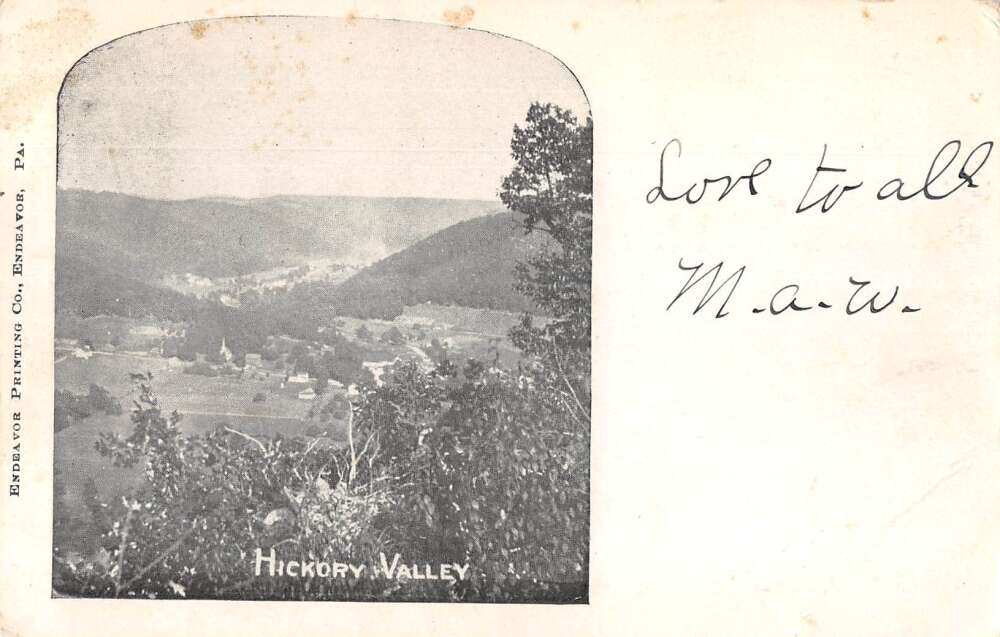 Endeavor Printing Co., Endeavor, Pa.
Hickory Valley
Love to all
M.a.w.